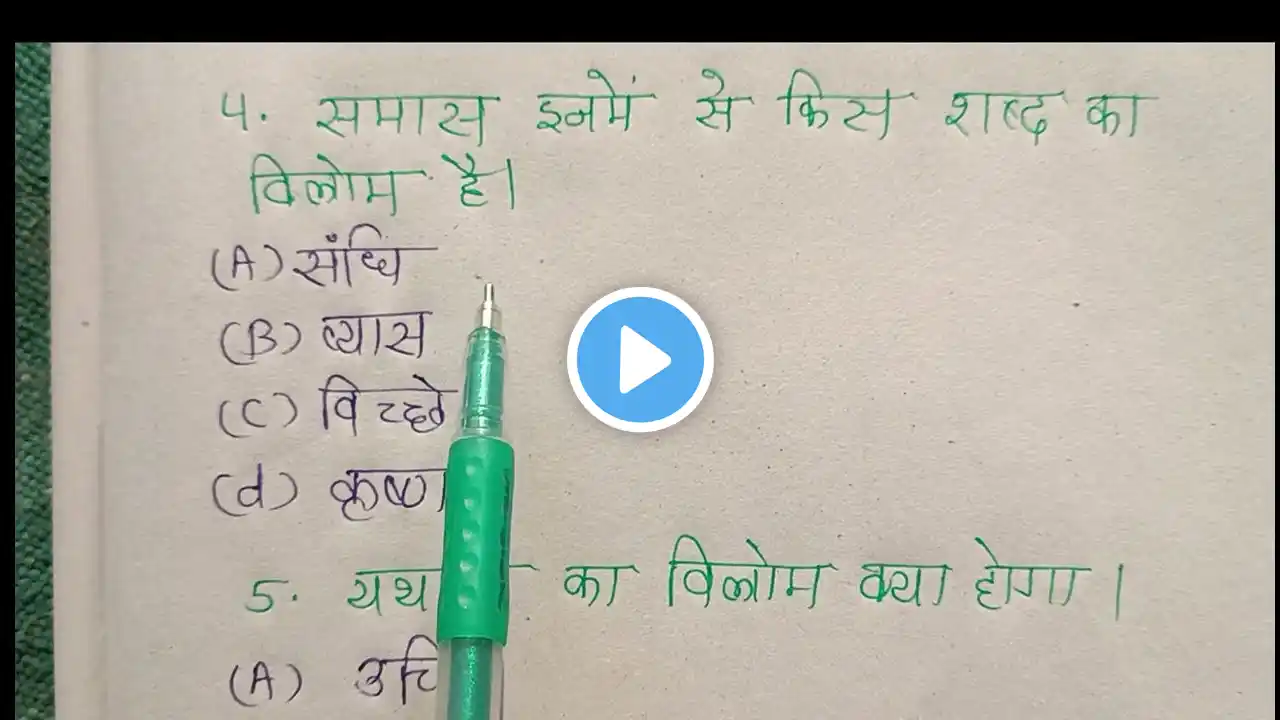 4. समास इनमें से किस शब्द का
विलोम है।
(A) संधि
(B) व्यास
(C)
(d) कृष्ण
5. का विलोम क्या होगा।
(A)